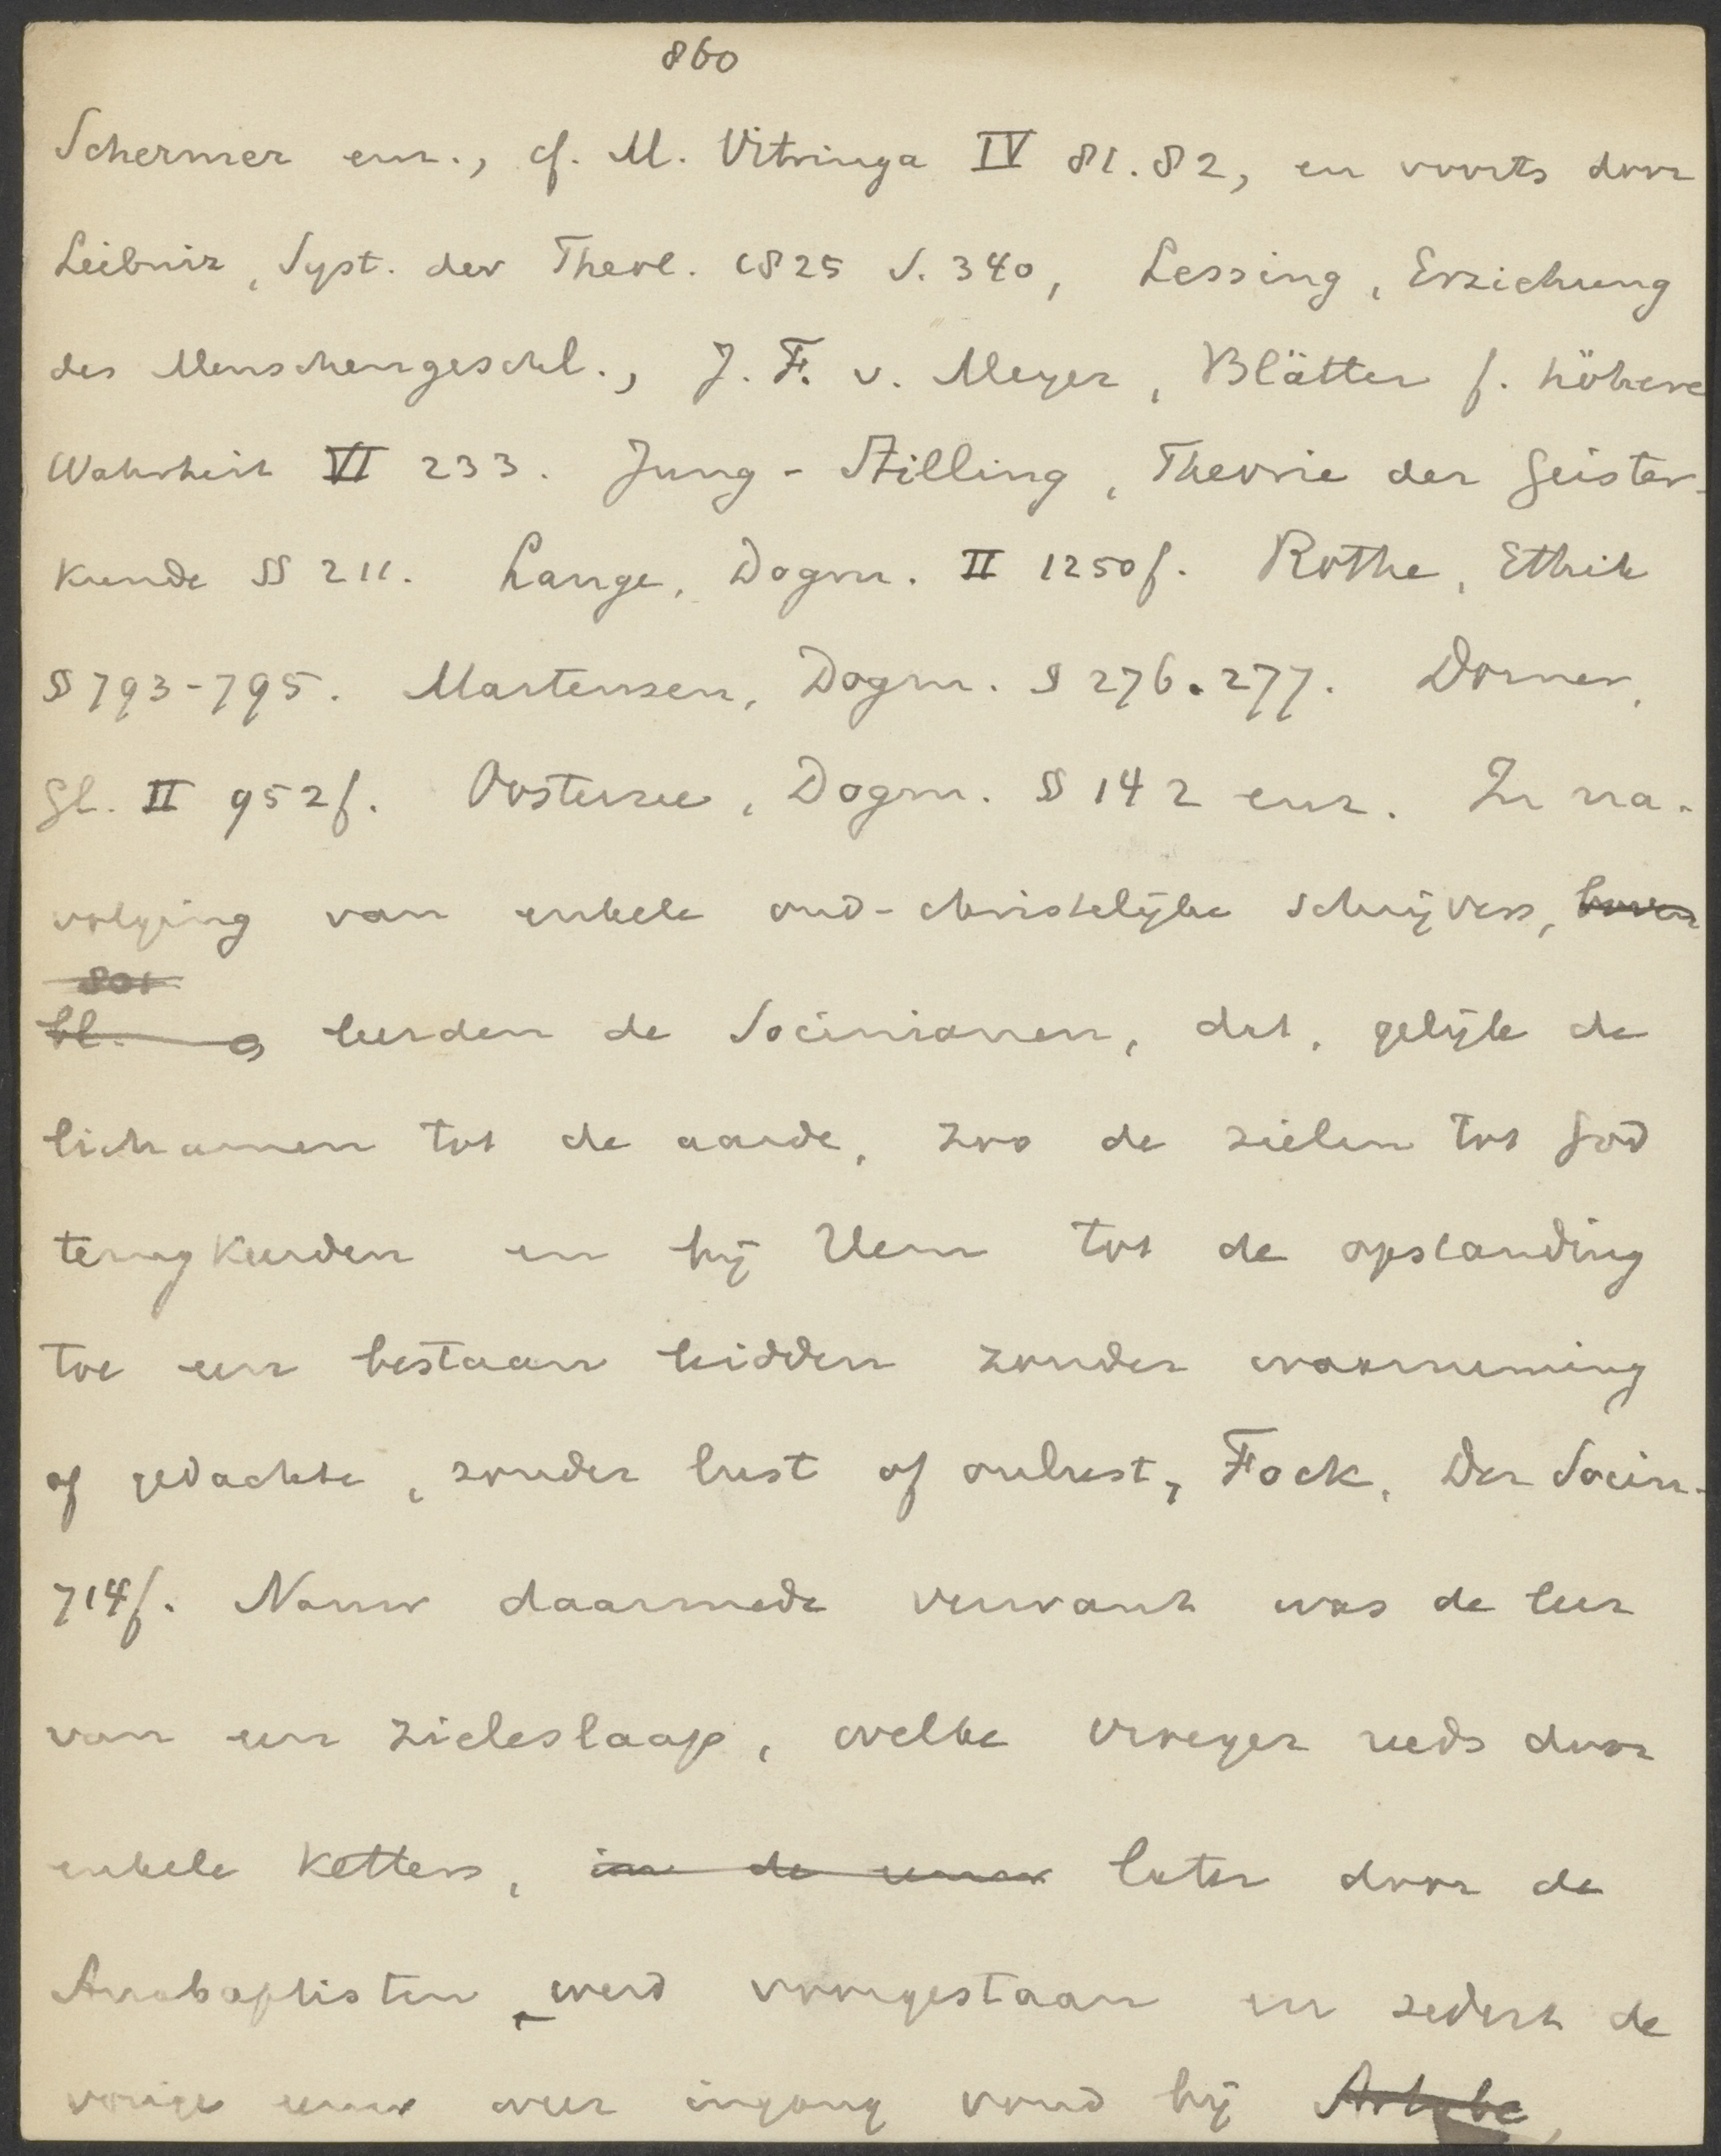 860
Schermer enz., cf. M. Vitringa IV 81.82, en voorts door
Leibniz, Syst. der Theol. 1825 S. 340, Lessing, Erziehung
des Menschengeschl., J. F. v. Meyer, Blätter f. höhere
Wahrheit VI 233. Jung-Stilling, Theorie der Geister-
kunde §§ 211. Lange, Dogm. II 1250f. Rothe, Ethik
§ 793-795. Martensen, Dogm. § 276.277. Dorner,
Gl. II 952f. Oosterzee, Dogm. § 142 enz. In na-
volging van enkele oud-christelijke schrijvers, boven
801
bl. leerden de Socinianen, dat, gelijk de
lichamen tot de aarde, zoo de zielen tot God
terugkeerden en bij Hem tot de opstanding
toe een bestaan leidden zonder waarneming
of gedachte, zonder lust of onlust, Fock, Der Socin.
714f. Nauw daarmede verwant was de leer
van een zieleslaap, welke vroeger reeds door
enkele ketters, in de eeuw later door de
Anabaptisten werd voorgestaan en sedert de
vorige eeuw weer ingang vond bij